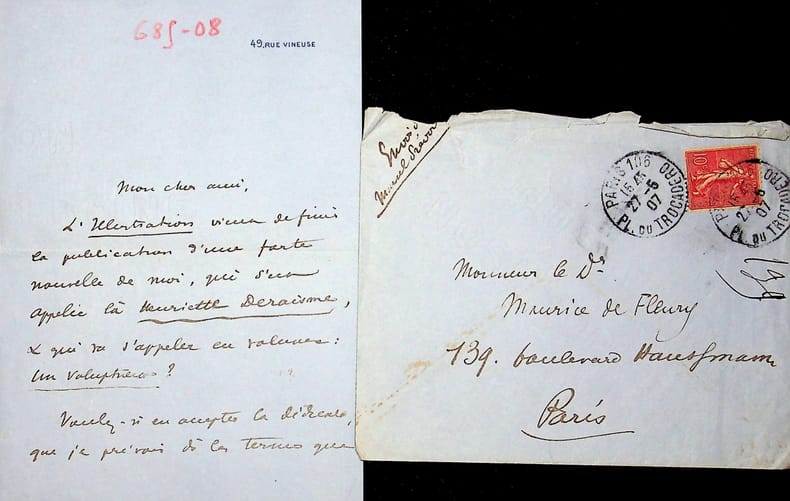 685-08
49, RUE VINEUSE
Mon cher ami,
L'Illustration vient de finir
la publication d'une forte
nouvelle de moi, qui s'est
appelée là Henriette Deraisme,
& qui va s'appeler en volume:
Un Voluptueux?
Voulez-vous en accepter la dédicace,
que je prévois dans les termes que
Envoi de
Marcel Prévost
PARIS 106
15 45
27-5
07
PL. DU TROCADERO
10
PARIS 106
15 45
27-5
07
PL. DU TROCADERO
139
Monsieur le Dr
Maurice de Fleury
139. boulevard Haussmann
Paris